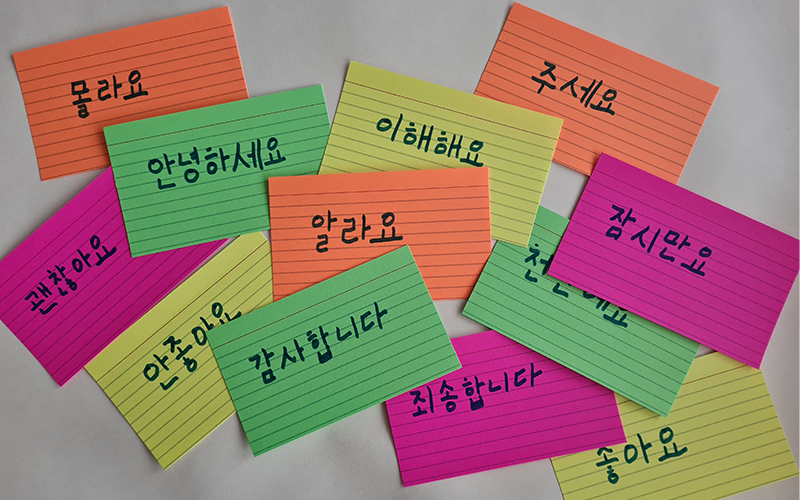 몰라요
주세요
안녕하세요
이해해요
알라요
잠시만요
괜찮아요
안좋아요
감사합니다
죄송합니다
좋아요